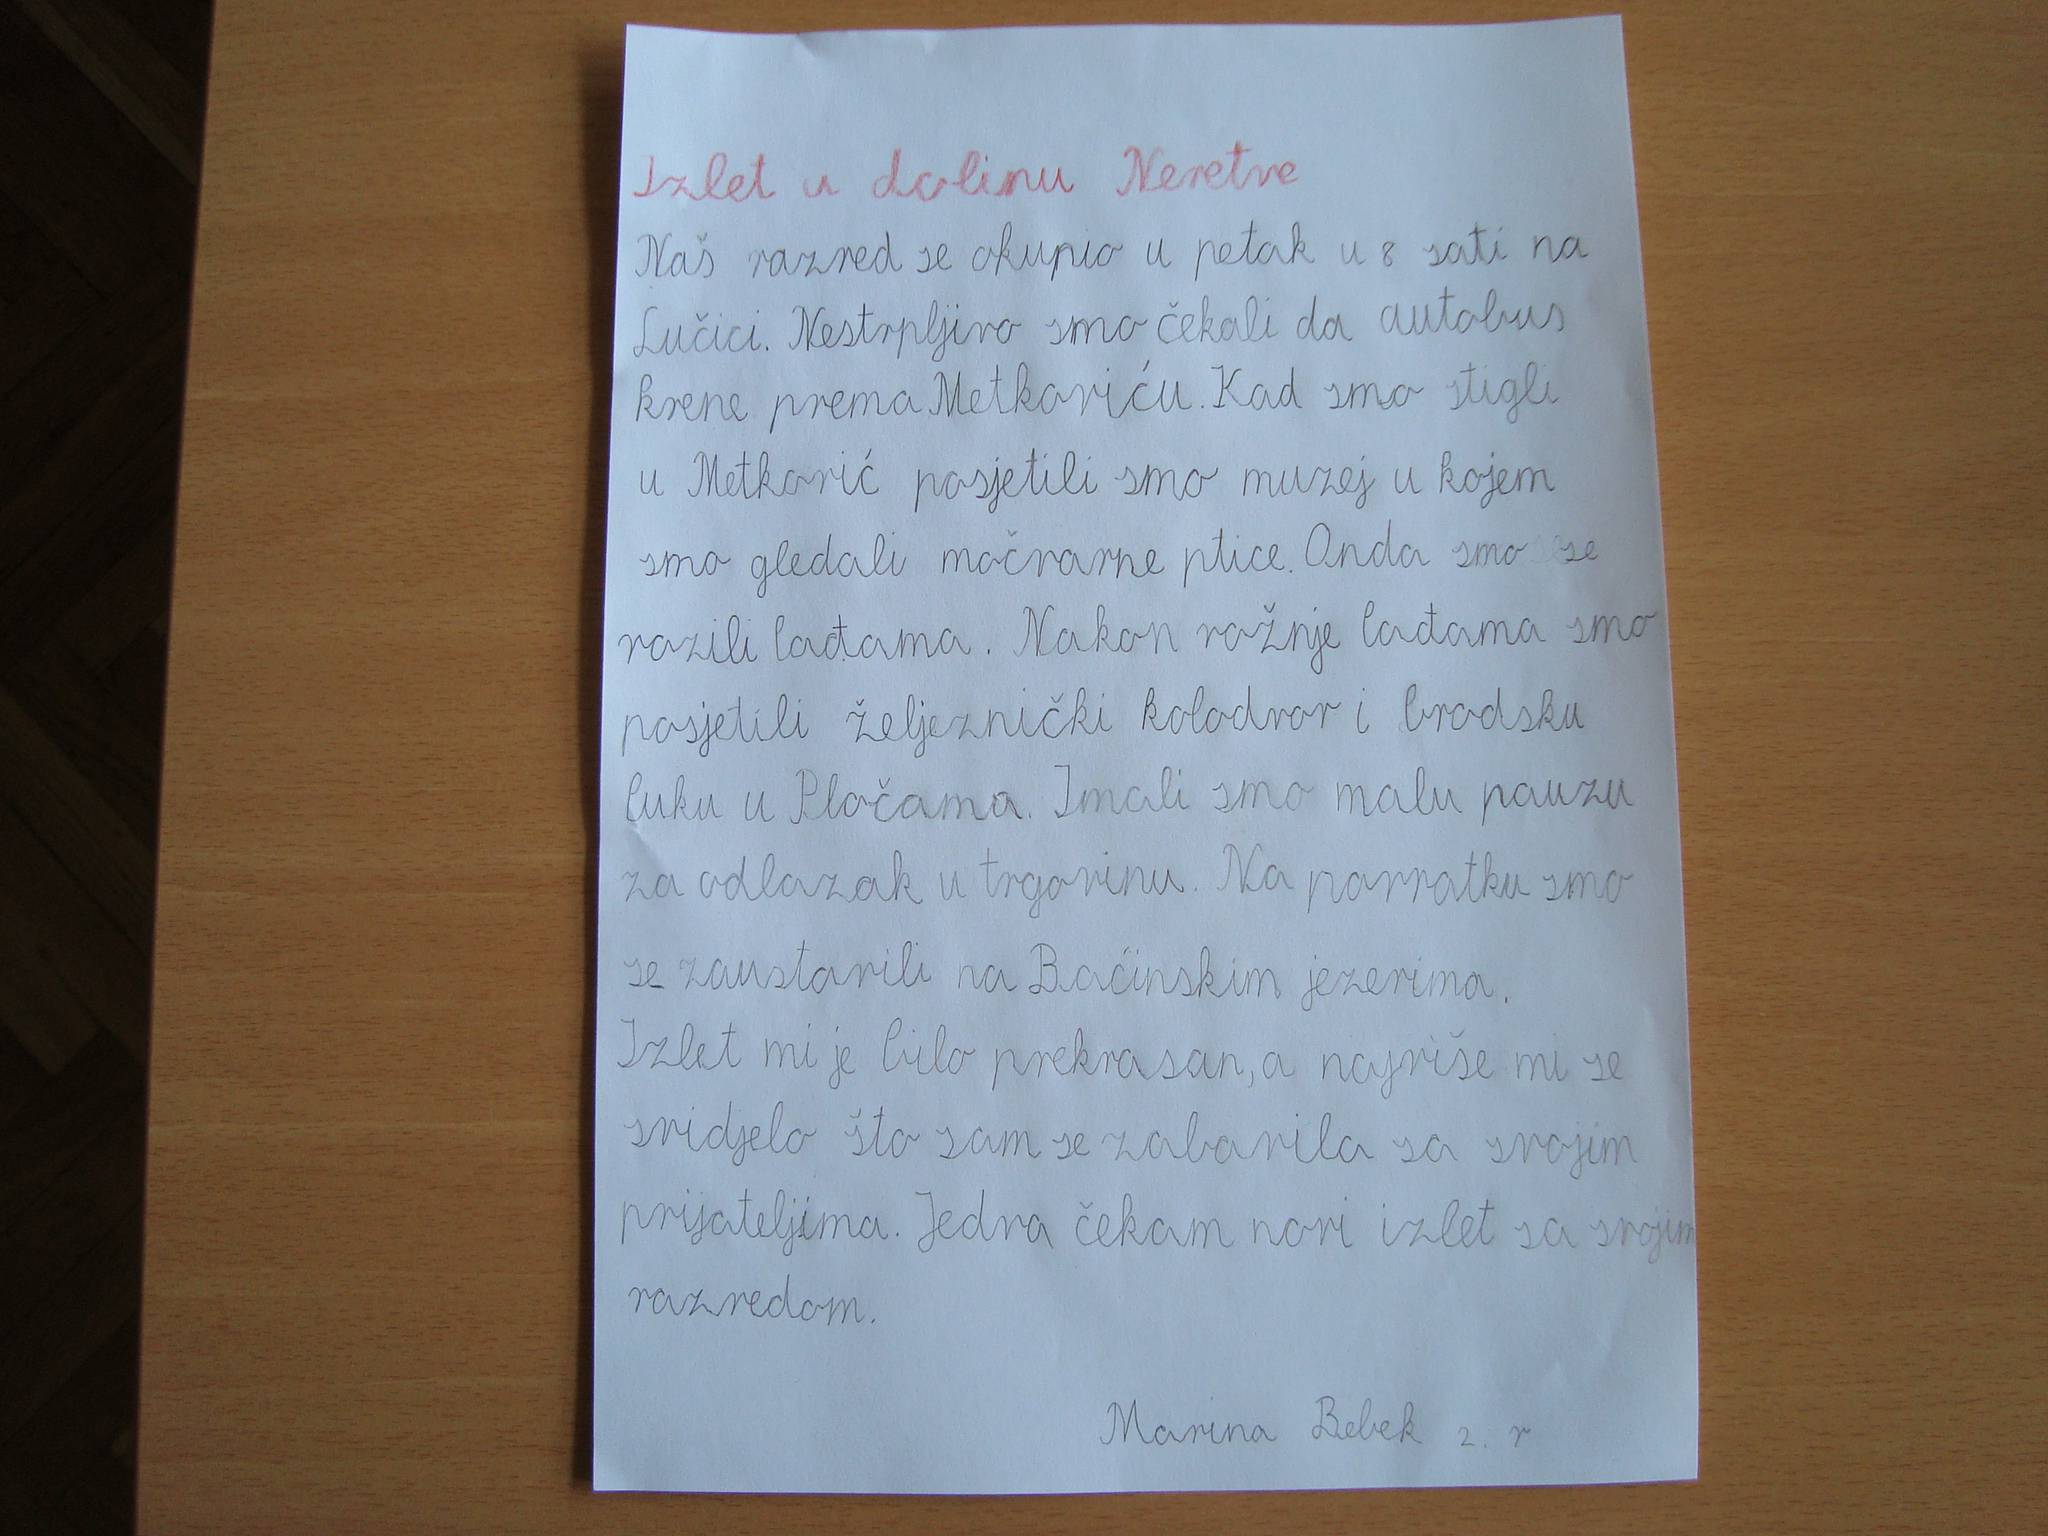 Izlet u dolinu Neretve
Naš razred se okupio u petak u 8 sati na
Lučici. Nestrpljivo smo čekali da autobus
krene prema Metkoviću. Kad smo stigli
u Metković posjetili smo muzej u kojem
smo gledali močvarne ptice. Onda smo se
vozili lađama. Nakon vožnje lađama smo
posjetili željeznički kolodvor i brodsku
luku u Pločama. Imali smo malu pauzu
za odlazak u trgovinu. Na povratku smo
se zaustavili na Baćinskim jezerima.
Izlet mi je bilo prekrasan, a najviše mi se
svidjelo što sam se zabavila sa svojim
prijateljima. Jedva čekam novi izlet sa svojim
razredom.
Marina Bebek 2. r